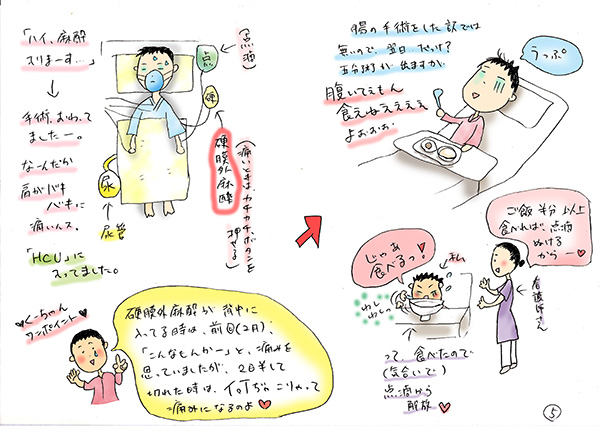 「ハイ、麻酔
入りまーす…」
手術、おわって
ましたー。
なーんだか
肩がバキ
バキに
痛いんス。
「HCU」に
入ってました。
(点滴)
点
硬
尿
尿管
硬膜外麻酔
(痛いときは、カチカチ、ボタンを
押せる)
くーちゃん
ワンポイント
硬膜外麻酔が背中に
入ってる時は、
「こんなもんかー」と、痛みを
思っていましたが、2日半して
切れた時は、
痛みになるのよ
胃の手術をした訳では
無いので、翌日、だっけ?
五分粥が出ますが、
腹いてえもん
食えねええええ
よおおお。
うっぷ
ご飯半分以上
食べれば、点滴
ぬける
からー
看護師さん
じゃあ
食べるっ!
私
わし
わしっ
って、食べたので
(気合いで)
点滴から
解放
5